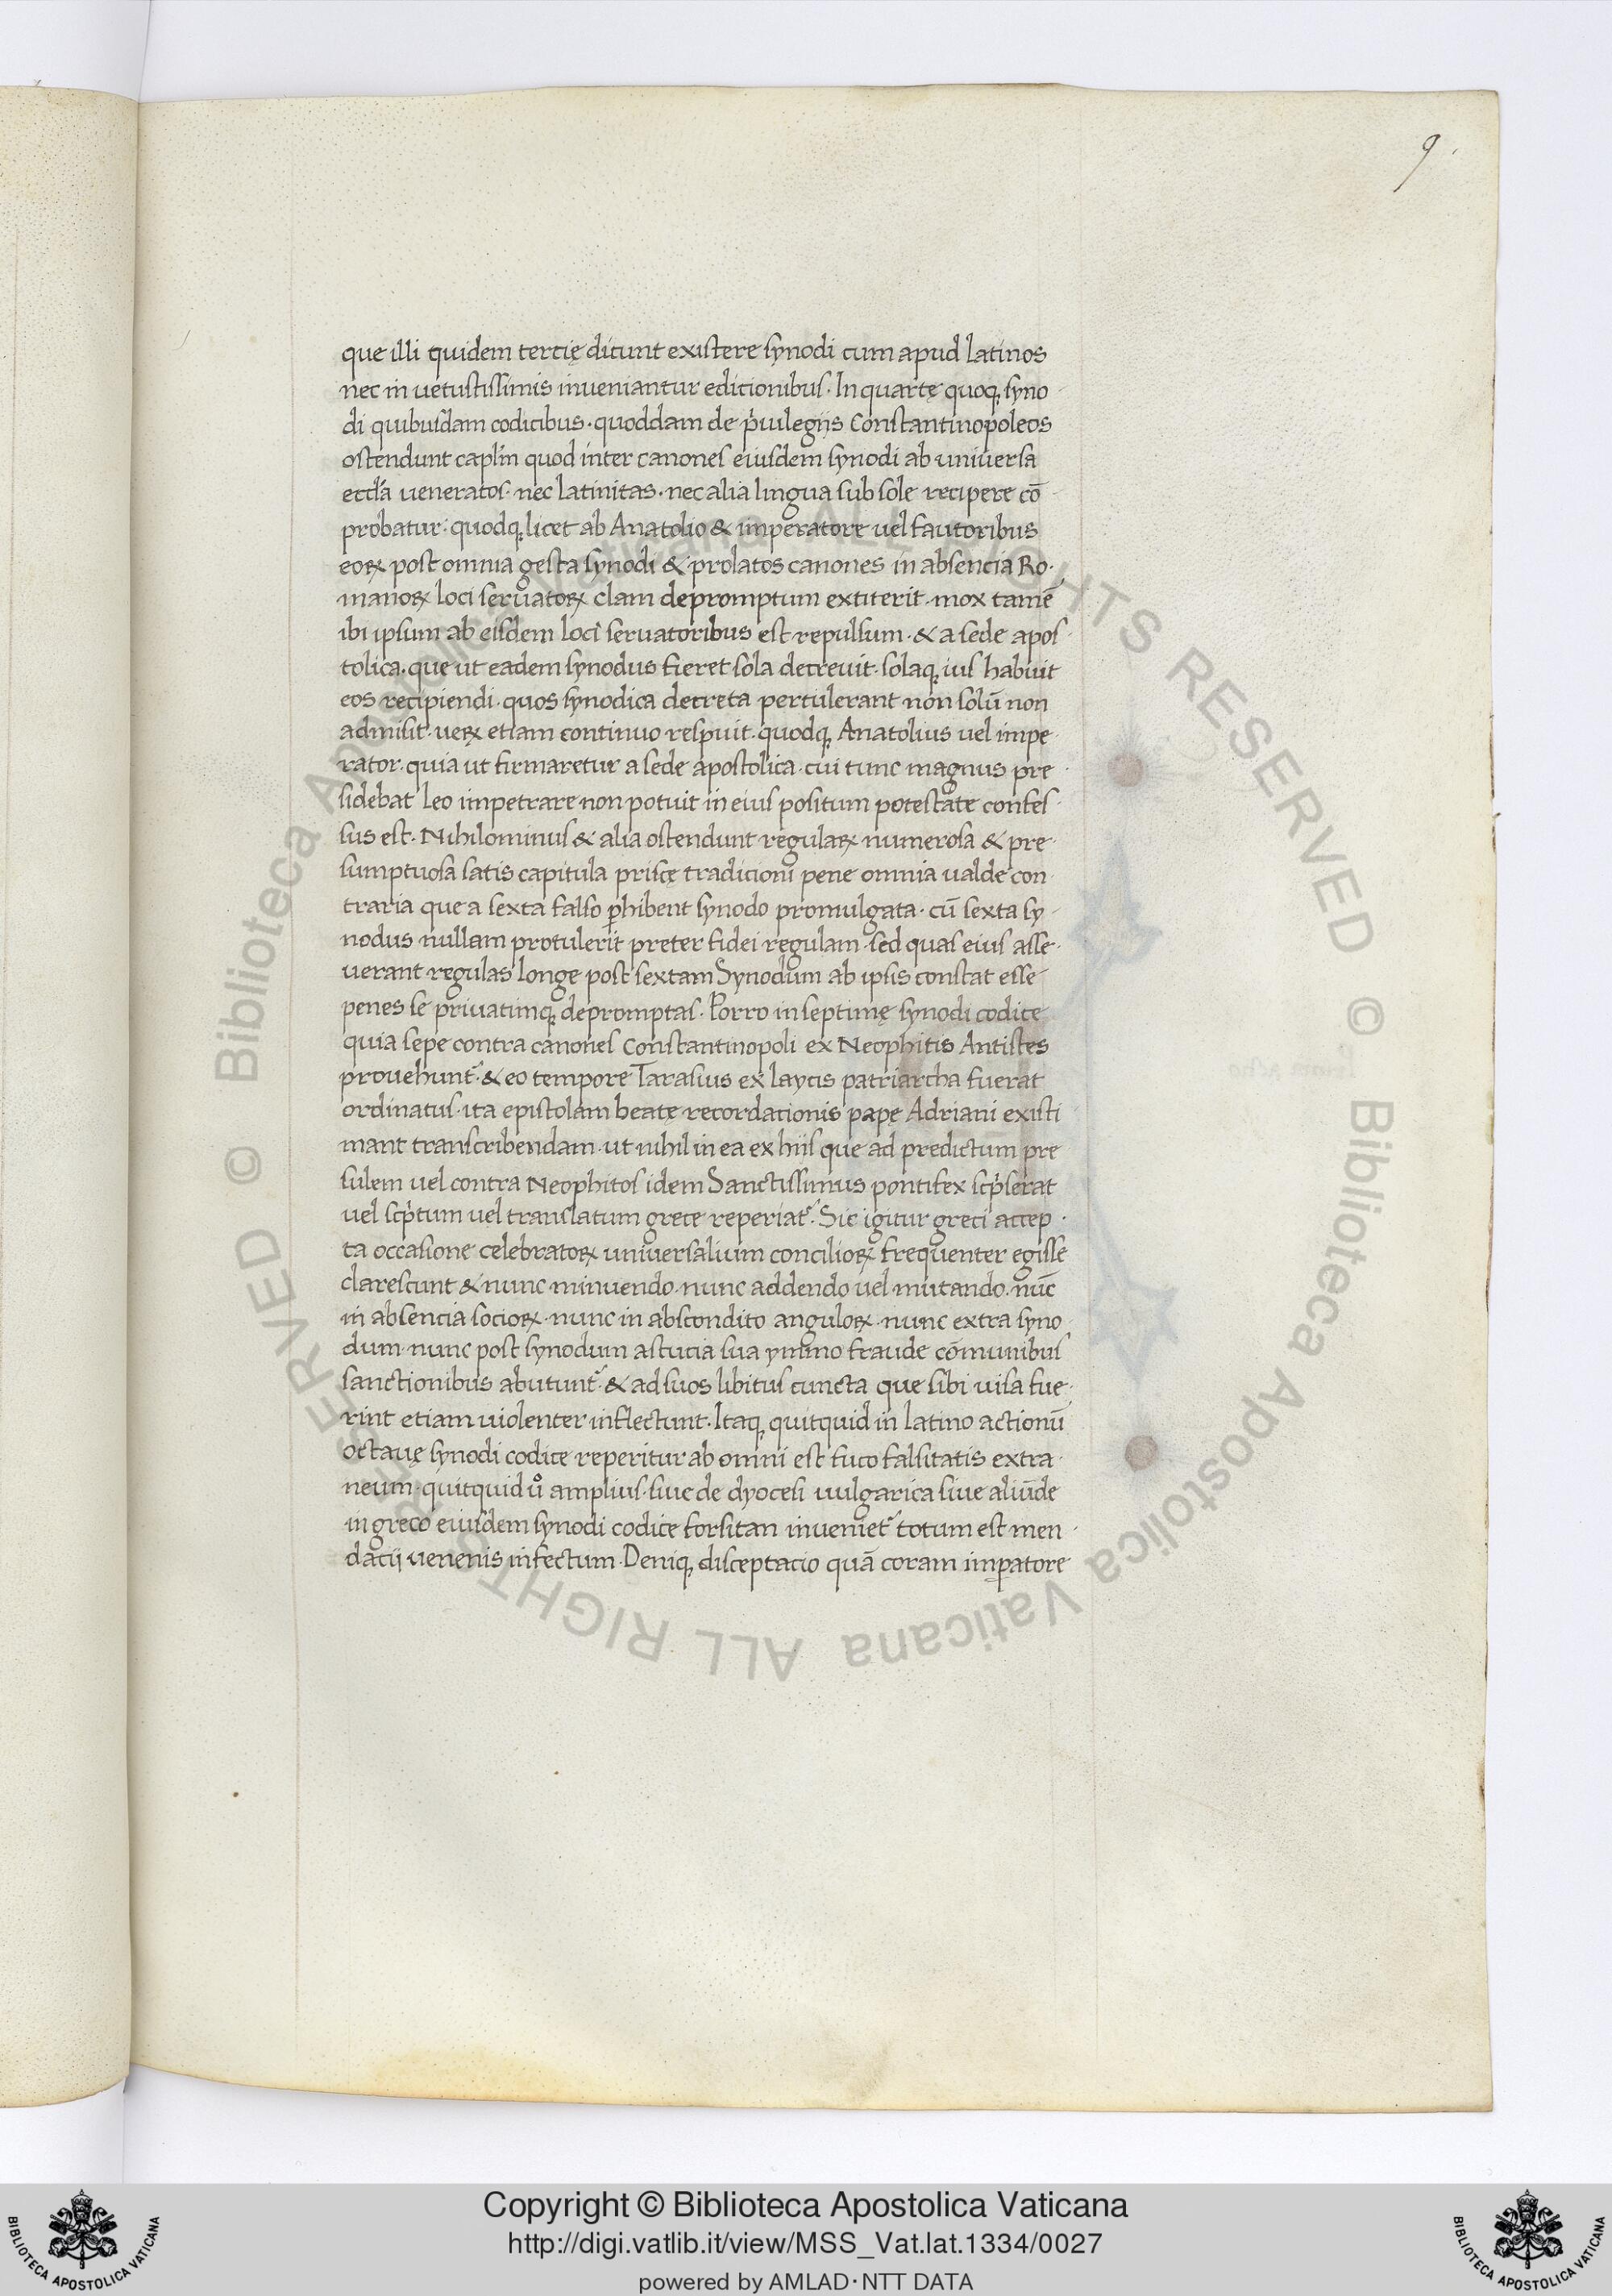 9.
que illi quidem tercię dicunt existere synodi cum apud Latinos
nec in uetustissimis inueniantur edicionibus. In quartę quoq; syno
di quibusdam codicibus. quoddam de p̓uilegiis Constantinopoleos
ostendunt capłm quod inter canones eiusdem synodi ab uniuersa
eccl̓a ueneratos. nec latinitas. nec alia lingua sub sole recipere cō
probatur. quodq; licet ab Anatolio & imperatore uel fautoribus
eoꝝ post omnia gesta synodi & prolatos canones in absencia Ro-
manoꝝ loci seruatoꝝ clam depromptum extiterit. mox tamē
ibi ipsum ab eisdem loci seruatoribus est repulsum. & a sede apos
tolica. que ut eadem synodus fieret sola decreuit. solaq; ius habuit
eos recipiendi. quos synodica decreta pertulerant non solū non
admisit. ueꝝ etiam continuo respuit. quodq; Anatolius uel impe
rator. quia ut firmaretur a sede apostolica. cui tunc magnus pre
sidebat Leo impetrare non potuit in eius positum potestate confes
sus est. Nihilominus & alia ostendunt regulaꝝ numerosa & pre
sumptuosa satis capitula priscę tradicioni pene omnia ualde con
traria que a sexta falso ꝑhibent synodo promulgata. cū sexta sy
nodus nullam protulerit preter fidei regulam. sed quas eius asse
uerant regulas longe post sextam Synodum ab ipsis constat esse
penes se priuatimq; depromptas. Porro in septimę synodi codice
quia sepe contra canones Constantinopoli ex Neophitis Antistes
prouehunt᷑. & eo tempore Tarasius ex laycis patriarcha fuerat
ordinatus. ita epistolam beatę recordationis papę Adriani existi
mant transcribendam. ut nihil in ea ex hiis que ad predictum pre
sulem uel contra Neophitos idem Sanctissimus pontifex scp̓serat
uel scp̓tum uel translatum grece reperiat᷑. Sic igitur greci accep
ta occasione celebratoꝝ uniuersalium concilioꝝ frequenter egisse
clarescunt & nunc minuendo. nunc addendo uel mutando. nūc
in absencia socioꝝ. nunc in abscondito anguloꝝ. nunc extra syno
dum. nunc post synodum astucia sua ymmo fraude cōmunibus
sanctionibus abutunt᷑. & ad suos libitus cuncta que sibi uisa fue
rint etiam uiolenter inflectunt. Itaq; quitquid in latino actionū
octauę synodi codice reperitur ab omni est fuco falsitatis extra
neum. quitquid uͦ amplius. siue de dyocesi uulgarica siue aliūde
in greco eiusdem synodi codice forsitan inueniet᷑ totum est men
dacij uenenis infectum. Deniq; disceptacio quā coram imꝑatore
© Biblioteca Apostolica Vaticana ALL RIGHTS RESERVED © Biblioteca Apostolica Vaticana ALL RIGHTS RESERVED
Copyright © Biblioteca Apostolica Vaticana
http://digi.vatlib.it/view/MSS_Vat.lat.1334/0027
powered by AMLAD·NTT DATA
BIBLIOTECA APOSTOLICA VATICANA
BIBLIOTECA APOSTOLICA VATICANA